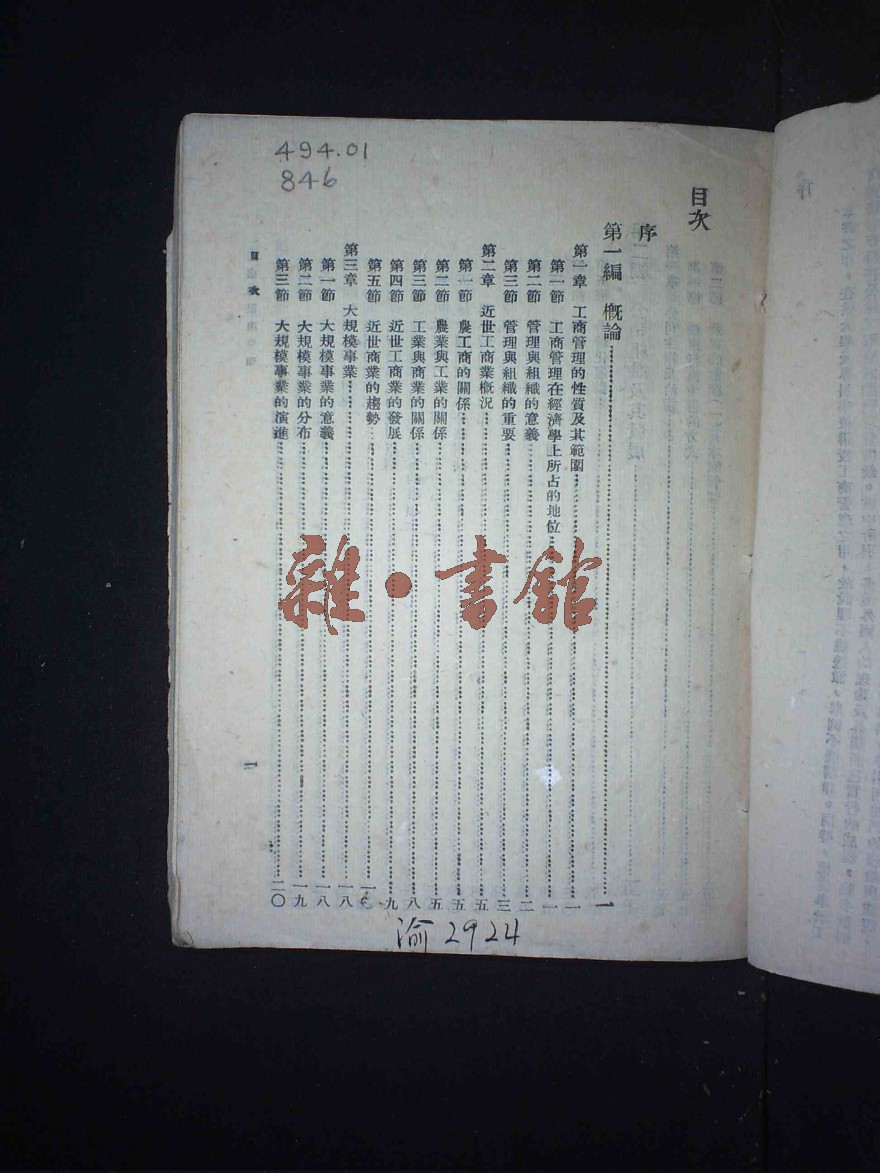 494.01
846
目次
序
第一編 概論……一
第一章 工商管理的性質及其範圍……一
第一節 工商管理在經濟學上所占的地位……一
第二節 管理與組織的意義……二
第三節 管理與組織的重要……三
第二章 近世工商業概況……五
第一節 農工商的關係……五
第二節 農業與工業的關係……五
第三節 工業與商業的關係……八
第四節 近世工商業的發展……九
第五節 近世商業的趨勢……
第三章 大規模事業……一八
第一節 大規模事業的意義……一八
第二節 大規模事業的分布……一九
第三節 大規模事業的演進……二〇
目次
一
渝2924
雜·書館